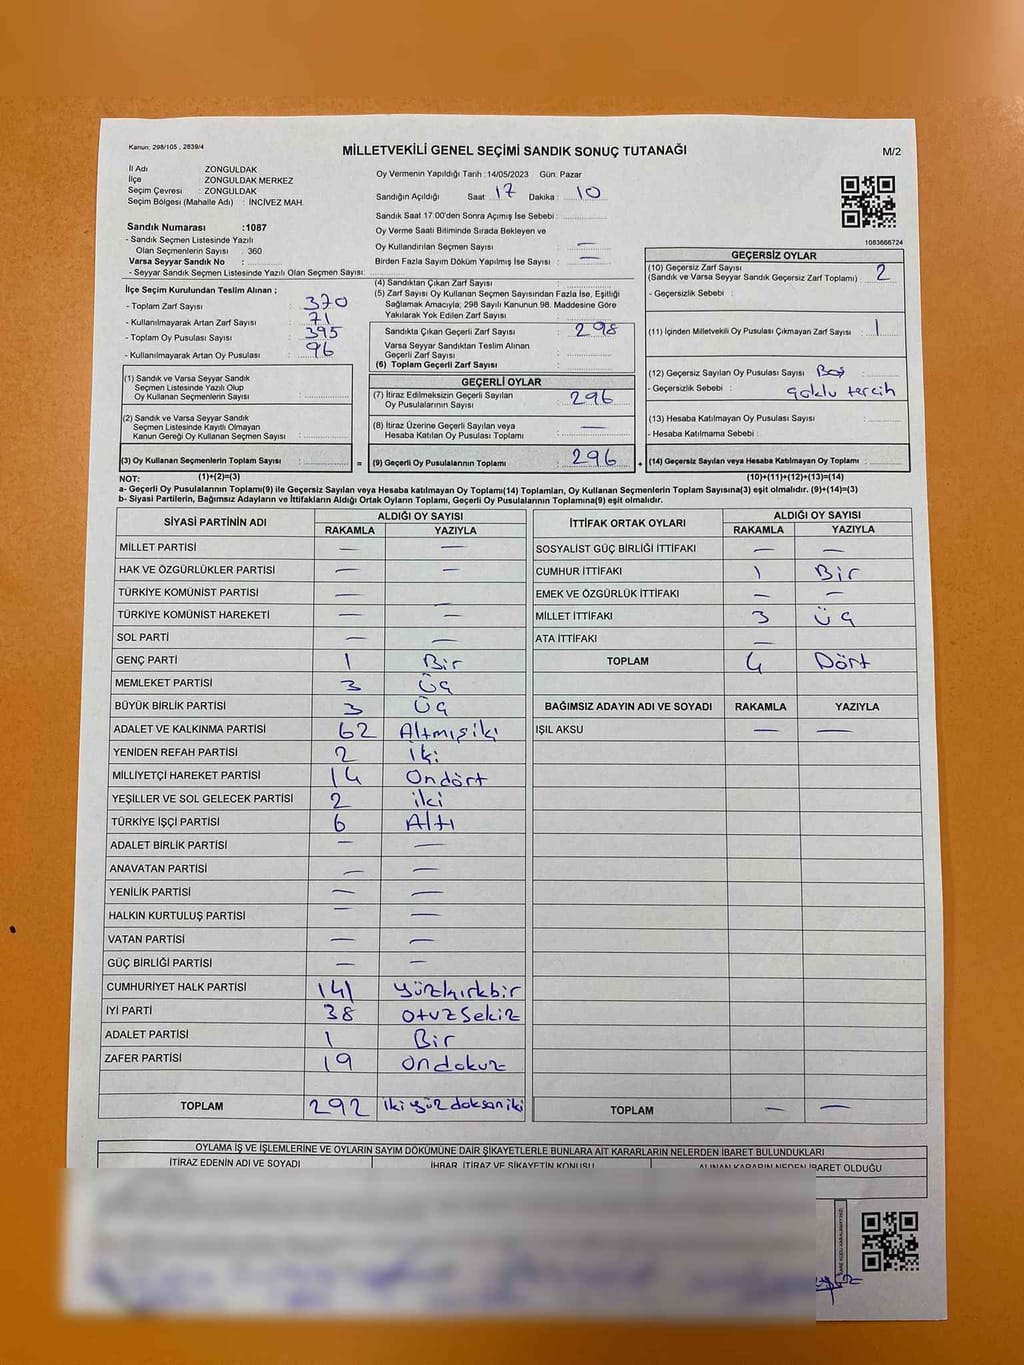 Kanun: 298/105 , 2839/4
MİLLETVEKİLİ GENEL SEÇİMİ SANDIK SONUÇ TUTANAĞI
M/2
İl Adı : ZONGULDAK
İlçe : ZONGULDAK MERKEZ
Seçim Çevresi : ZONGULDAK
Seçim Bölgesi (Mahalle Adı) : İNCİVEZ MAH.
Sandık Numarası :1087
- Sandık Seçmen Listesinde Yazılı
Olan Seçmenlerin Sayısı : 360
Varsa Seyyar Sandık No :
- Seyyar Sandık Seçmen Listesinde Yazılı Olan Seçmen Sayısı:
Oy Vermenin Yapıldığı Tarih :14/05/2023 Gün: Pazar
Sandığın Açıldığı Saat: 17 Dakika : 10
Sandık Saat 17.00'den Sonra Açımış İse Sebebi :
Oy Verme Saati Bitiminde Sırada Bekleyen ve
Oy Kullandırılan Seçmen Sayısı : —
Birden Fazla Sayım Döküm Yapılmış İse Sayısı : —
1083666724
İlçe Seçim Kurulundan Teslim Alınan ;
- Toplam Zarf Sayısı : 370
- Kullanılmayarak Artan Zarf Sayısı : 71
- Toplam Oy Pusulası Sayısı : 395
- Kullanılmayarak Artan Oy Pusulası : 96
(1) Sandık ve Varsa Seyyar Sandık
Seçmen Listesinde Yazılı Olup
Oy Kullanan Seçmenlerin Sayısı :
(2) Sandık ve Varsa Seyyar Sandık
Seçmen Listesinde Kayıtlı Olmayan
Kanun Gereği Oy Kullanan Seçmen Sayısı :
(3) Oy Kullanan Seçmenlerin Toplam Sayısı :
(4) Sandıktan Çıkan Zarf Sayısı :
(5) Zarf Sayısı Oy Kullanan Seçmen Sayısından Fazla İse, Eşitliği
Sağlamak Amacıyla; 298 Sayılı Kanunun 98. Maddesine Göre
Yakılarak Yok Edilen Zarf Sayısı :
Sandıkta Çıkan Geçerli Zarf Sayısı : 298
Varsa Seyyar Sandıktan Teslim Alınan
Geçerli Zarf Sayısı :
(6) Toplam Geçerli Zarf Sayısı :
GEÇERLİ OYLAR
(7) İtiraz Edilmeksizin Geçerli Sayılan
Oy Pusulalarının Sayısı : 296
(8) İtiraz Üzerine Geçerli Sayılan veya
Hesaba Katılan Oy Pusulası Toplamı : —
= (9) Geçerli Oy Pusulalarının Toplamı : 296 +
GEÇERSİZ OYLAR
(10) Geçersiz Zarf Sayısı
(Sandık ve Varsa Seyyar Sandık Geçersiz Zarf Toplamı) : 2
- Geçersizlik Sebebi :
(11) İçinden Milletvekili Oy Pusulası Çıkmayan Zarf Sayısı : 1
(12) Geçersiz Sayılan Oy Pusulası Sayısı : Boş
- Geçersizlik Sebebi : çoklu tercih
(13) Hesaba Katılmayan Oy Pusulası Sayısı :
- Hesaba Katılmama Sebebi :
(14) Geçersiz Sayılan veya Hesaba Katılmayan Oy Toplamı :
NOT: (1)+(2)=(3) (10)+(11)+(12)+(13)=(14)
a- Geçerli Oy Pusulalarının Toplamı(9) ile Geçersiz Sayılan veya Hesaba katılmayan Oy Toplamı(14) Toplamları, Oy Kullanan Seçmenlerin Toplam Sayısına(3) eşit olmalıdır. (9)+(14)=(3)
b- Siyasi Partilerin, Bağımsız Adayların ve İttifakların Aldığı Ortak Oyların Toplamı, Geçerli Oy Pusulalarının Toplamına(9) eşit olmalıdır.
SİYASİ PARTİNİN ADI ALDIĞI OY SAYISI
RAKAMLA YAZIYLA
MİLLET PARTİSİ — —
HAK VE ÖZGÜRLÜKLER PARTİSİ — —
TÜRKİYE KOMÜNİST PARTİSİ — —
TÜRKİYE KOMÜNİST HAREKETİ — —
SOL PARTİ — —
GENÇ PARTİ 1 Bir
MEMLEKET PARTİSİ 3 Üç
BÜYÜK BİRLİK PARTİSİ 3 Üç
ADALET VE KALKINMA PARTİSİ 62 Altmışiki
YENİDEN REFAH PARTİSİ 2 İki
MİLLİYETÇİ HAREKET PARTİSİ 14 Ondört
YEŞİLLER VE SOL GELECEK PARTİSİ 2 iki
TÜRKİYE İŞÇİ PARTİSİ 6 Altı
ADALET BİRLİK PARTİSİ — —
ANAVATAN PARTİSİ — —
YENİLİK PARTİSİ — —
HALKIN KURTULUŞ PARTİSİ — —
VATAN PARTİSİ — —
GÜÇ BİRLİĞİ PARTİSİ — —
CUMHURİYET HALK PARTİSİ 141 yüzkırkbir
İYİ PARTİ 38 otuzsekiz
ADALET PARTİSİ 1 Bir
ZAFER PARTİSİ 19 ondokuz
TOPLAM 292 ikiyüzdoksaniki
İTTİFAK ORTAK OYLARI ALDIĞI OY SAYISI
RAKAMLA YAZIYLA
SOSYALİST GÜÇ BİRLİĞİ İTTİFAKI — —
CUMHUR İTTİFAKI 1 Bir
EMEK VE ÖZGÜRLÜK İTTİFAKI — —
MİLLET İTTİFAKI 3 üç
ATA İTTİFAKI —
TOPLAM 4 Dört
BAĞIMSIZ ADAYIN ADI VE SOYADI RAKAMLA YAZIYLA
IŞIL AKSU — —
TOPLAM — —
OYLAMA İŞ VE İŞLEMLERİNE VE OYLARIN SAYIM DÖKÜMÜNE DAİR ŞİKAYETLERLE BUNLARA AİT KARARLARIN NELERDEN İBARET BULUNDUKLARI
İTİRAZ EDENİN ADI VE SOYADI İHBAR, İTİRAZ VE ŞİKAYETİN KONUSU ALINAN KARARIN NEDEN İBARET OLDUĞU